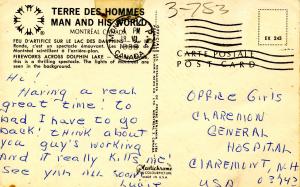 3-753
TERRE DES HOMMES
MAN AND HIS WORLD
MONTRÉAL CANADA
PM
1969
CANADA
FEU D'ARTIFICE SUR LE LAC DES DAUPHINS
Ronde, c'est un spectacle émouvant. Les
Montréal scintillent à l'arrière-plan.
FIREWORKS ACROSS DOLPHIN LAKE
this is a thrilling spectacle. The lights of Montreal are
seen in the background.
EX 243
CARTE POSTALE
POST CARD
Hi!
Having a real
great time! to
bad I have to go
back! think about
you guy's working
and it really kills me!
See ynn all soon
Office Girls
Claremon
General
Hospital
Claremont, N.H.
USA 03743